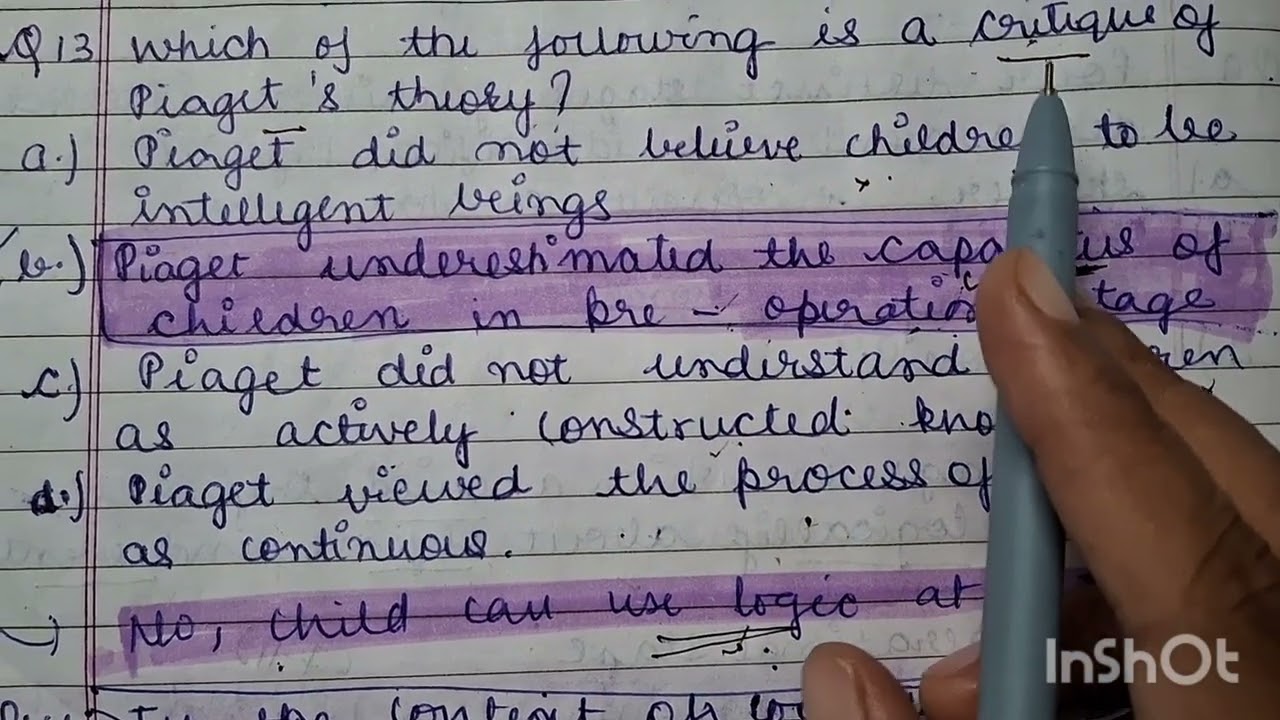 Q13 Which of the following is a critique of
Piaget's theory?
a.) Piaget did not believe children to be
intelligent beings
b.) Piaget underestimated the of
children in pre - stage
c.) Piaget did not understand
as actively constructed
d.) Piaget viewed the process of
as continuous.
→ No, child can use logic at
InShOt